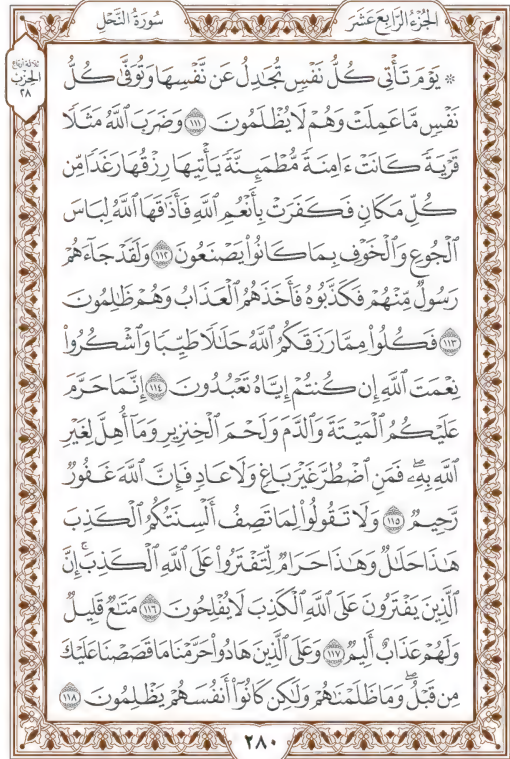 الجزء الرابع عشر
سورة النحل
ثلاثة أرباع
الحزب
٢٨
۞ يَوْمَ تَأْتِى كُلُّ نَفْسٍ تُجَٰدِلُ عَن نَّفْسِهَا وَتُوَفَّىٰ كُلُّ
نَفْسٍ مَّا عَمِلَتْ وَهُمْ لَا يُظْلَمُونَ ١١١ وَضَرَبَ ٱللَّهُ مَثَلًا
قَرْيَةً كَانَتْ ءَامِنَةً مُّطْمَئِنَّةً يَأْتِيهَا رِزْقُهَا رَغَدًا مِّن
كُلِّ مَكَانٍ فَكَفَرَتْ بِأَنْعُمِ ٱللَّهِ فَأَذَٰقَهَا ٱللَّهُ لِبَاسَ
ٱلْجُوعِ وَٱلْخَوْفِ بِمَا كَانُوا۟ يَصْنَعُونَ ١١٢ وَلَقَدْ جَآءَهُمْ
رَسُولٌ مِّنْهُمْ فَكَذَّبُوهُ فَأَخَذَهُمُ ٱلْعَذَابُ وَهُمْ ظَٰلِمُونَ
١١٣ فَكُلُوا۟ مِمَّا رَزَقَكُمُ ٱللَّهُ حَلَٰلًا طَيِّبًا وَٱشْكُرُوا۟
نِعْمَتَ ٱللَّهِ إِن كُنتُمْ إِيَّاهُ تَعْبُدُونَ ١١٤ إِنَّمَا حَرَّمَ
عَلَيْكُمُ ٱلْمَيْتَةَ وَٱلدَّمَ وَلَحْمَ ٱلْخِنزِيرِ وَمَآ أُهِلَّ لِغَيْرِ
ٱللَّهِ بِهِۦ ۖ فَمَنِ ٱضْطُرَّ غَيْرَ بَاغٍ وَلَا عَادٍ فَإِنَّ ٱللَّهَ غَفُورٌ
رَّحِيمٌ ١١٥ وَلَا تَقُولُوا۟ لِمَا تَصِفُ أَلْسِنَتُكُمُ ٱلْكَذِبَ
هَٰذَا حَلَٰلٌ وَهَٰذَا حَرَامٌ لِّتَفْتَرُوا۟ عَلَى ٱللَّهِ ٱلْكَذِبَ ۚ إِنَّ
ٱلَّذِينَ يَفْتَرُونَ عَلَى ٱللَّهِ ٱلْكَذِبَ لَا يُفْلِحُونَ ١١٦ مَتَٰعٌ قَلِيلٌ
وَلَهُمْ عَذَابٌ أَلِيمٌ ١١٧ وَعَلَى ٱلَّذِينَ هَادُوا۟ حَرَّمْنَا مَا قَصَصْنَا عَلَيْكَ
مِن قَبْلُ ۖ وَمَا ظَلَمْنَٰهُمْ وَلَٰكِن كَانُوٓا۟ أَنفُسَهُمْ يَظْلِمُونَ ١١٨
٢٨٠